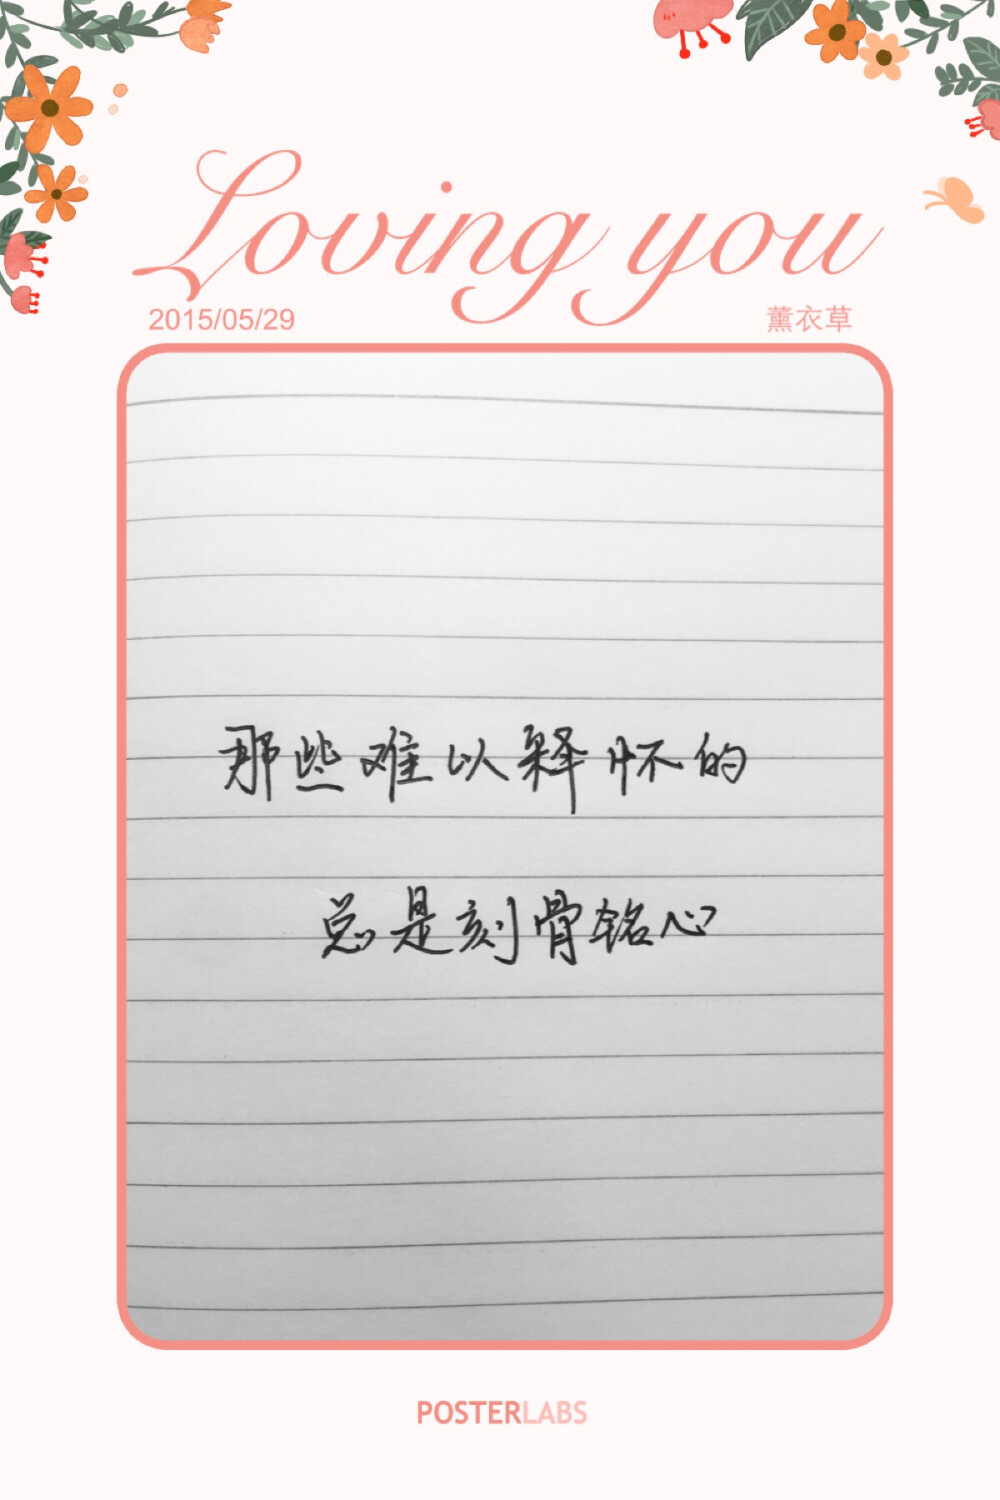 Loving you
2015/05/29 薰衣草
那些难以释怀的
总是刻骨铭心
POSTERLABS